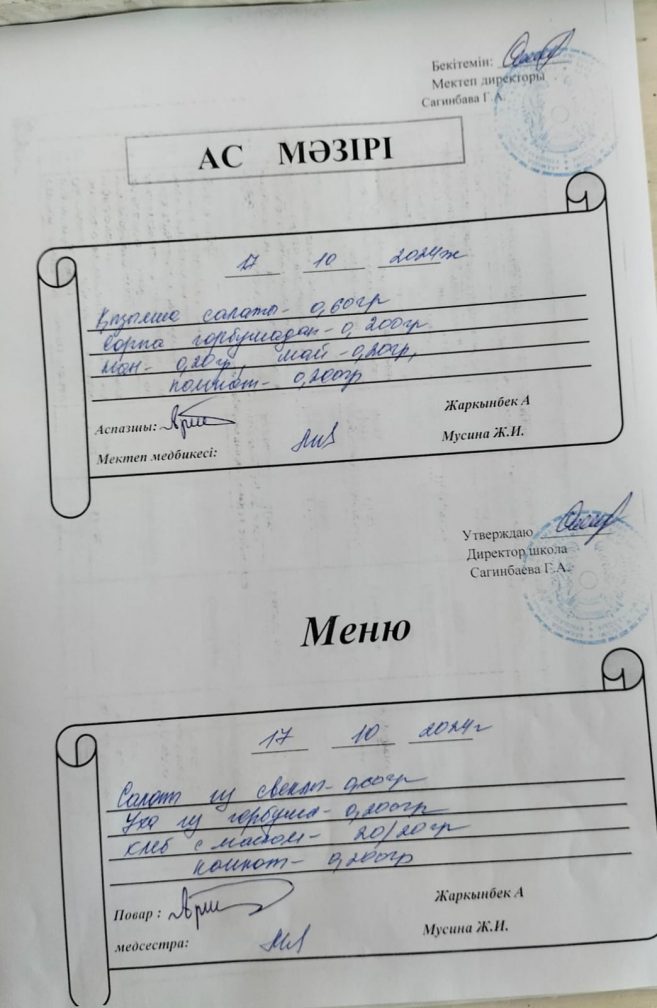 Бекітемін:
Мектеп директоры
Сагинбава Г.А.
АС МӘЗІРІ
17 10 2024ж
Қызылша салаты - 0,60гр
Сорпа горбушадан - 0,200гр
нан - 0,20гр, май - 0,20гр,
компот - 0,200гр
Аспазшы: Жаркынбек А
Мектеп медбикесі: Мусина Ж.И.
Утверждаю
Директор школа
Сагинбаева Г.А.
Меню
17 10 2024г
Салат из свеклы - 0,60гр
Уха из горбуши - 0,200гр
Хлеб с маслом - 20/20гр
компот - 0,200гр
Повар : Жаркынбек А
медсестра: Мусина Ж.И.